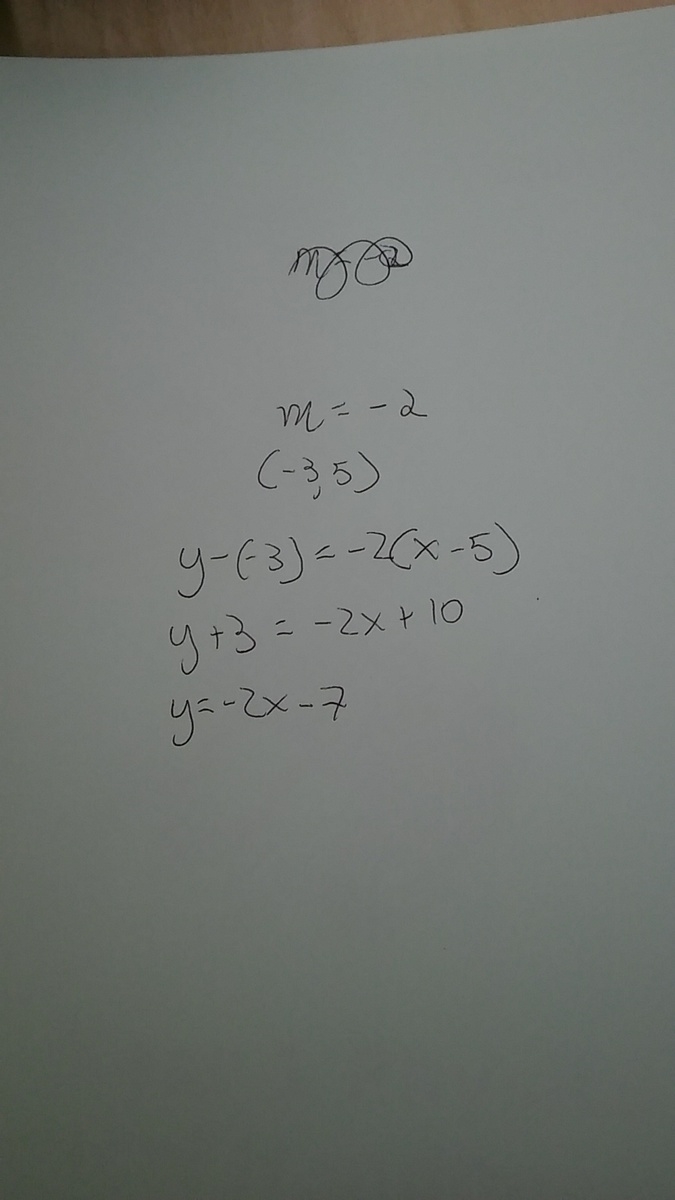 m = -2
(-3,5)
y-(-3)=-2(x-5)
y+3 = -2x+10
y=-2x-7